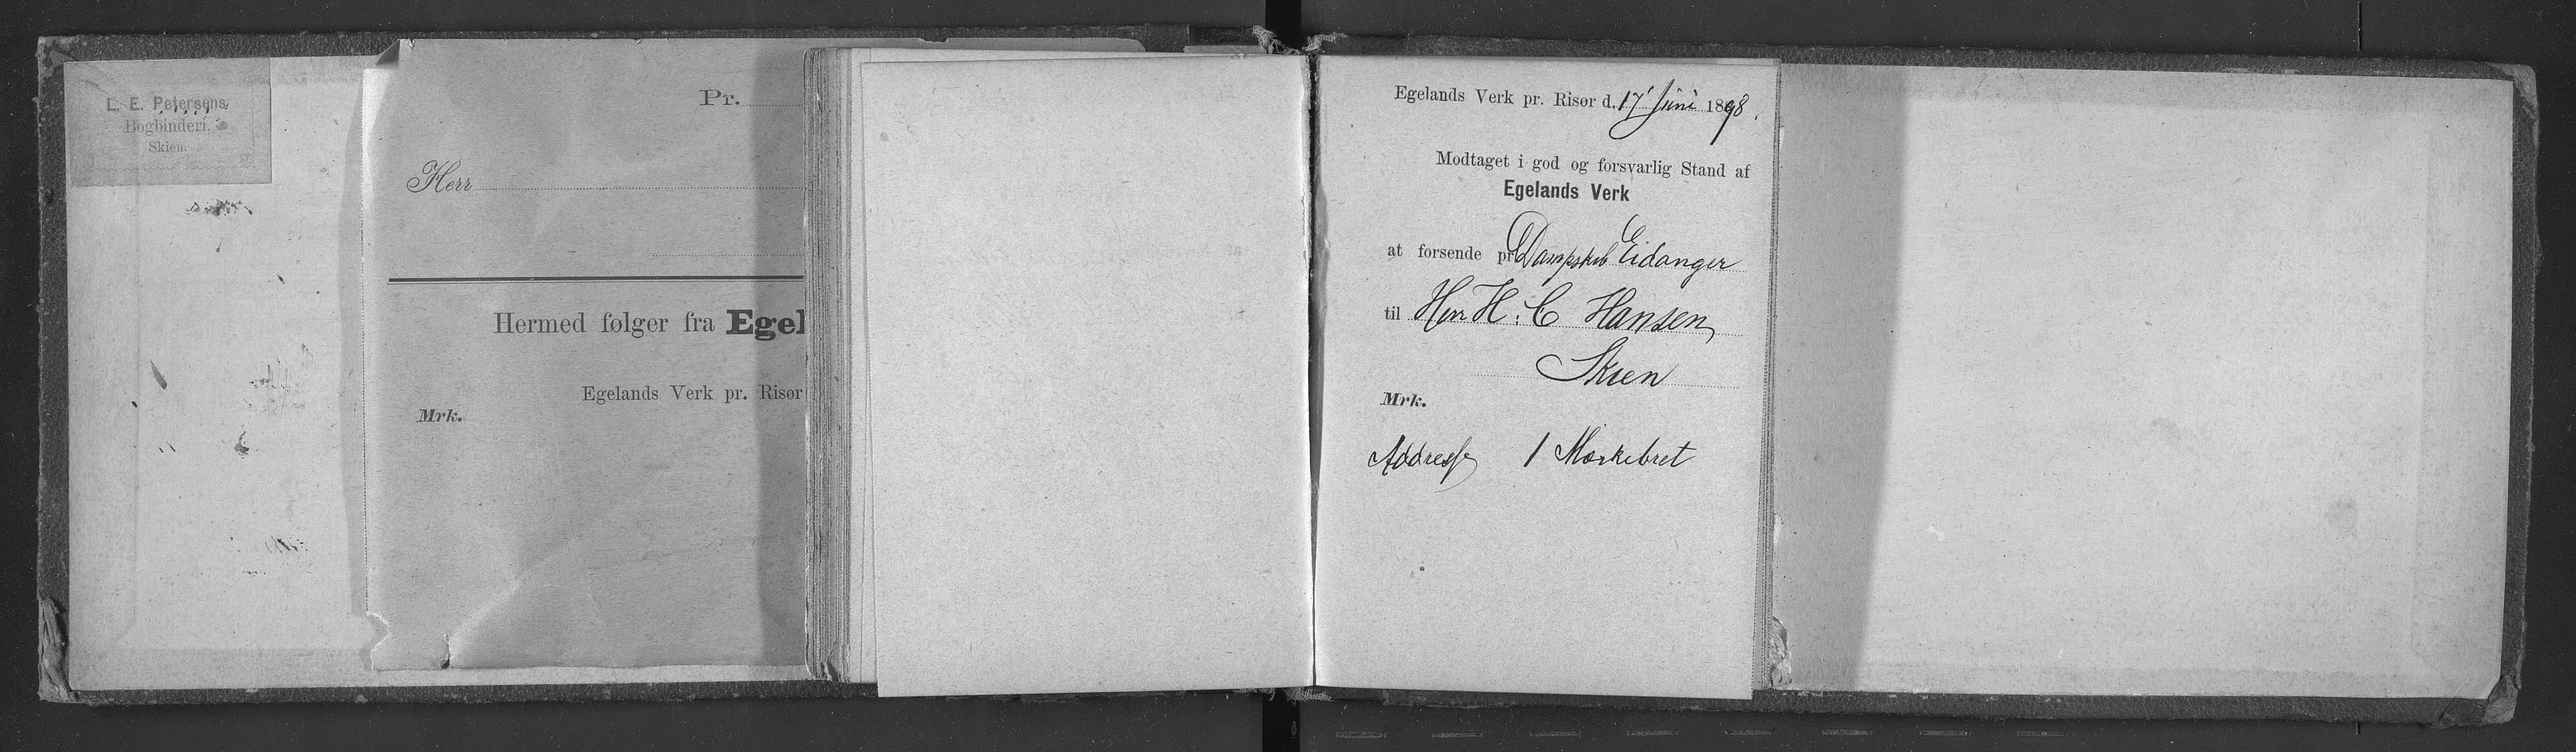 L. E. Petersens
Bogbinderi,
Skien.
Pr.
Herr
Hermed følger fra Egel
Egelands Verk pr. Risør
Mrk.
Egelands Verk pr. Risør d. 17 Juni 1898.
Modtaget i god og forsvarlig Stand af
Egelands Verk
at forsende pr Dampskib Eidanger
til Herr H. C Hansen,
Skien
Mrk.
Addresse 1 Mærkebret